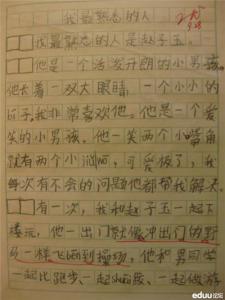 我最熟悉的人
我最熟悉的人是赵子玉。
他是一个活发开朗的小男孩。
他长着一双大眼睛,一个小小的
子我非常喜欢他。他是一个爱
笑的小男孩。他一笑两个小嘴角
就有两个小酒窝,可爱极了,我
每次有不会的问题他都帮我解决。
有一次,我和赵子玉一起下
楼玩,他一出门就像冲出们的野
马一样飞跑到操场,他和男同学
一起比跑步、一起 、一起做游
eduu论坛